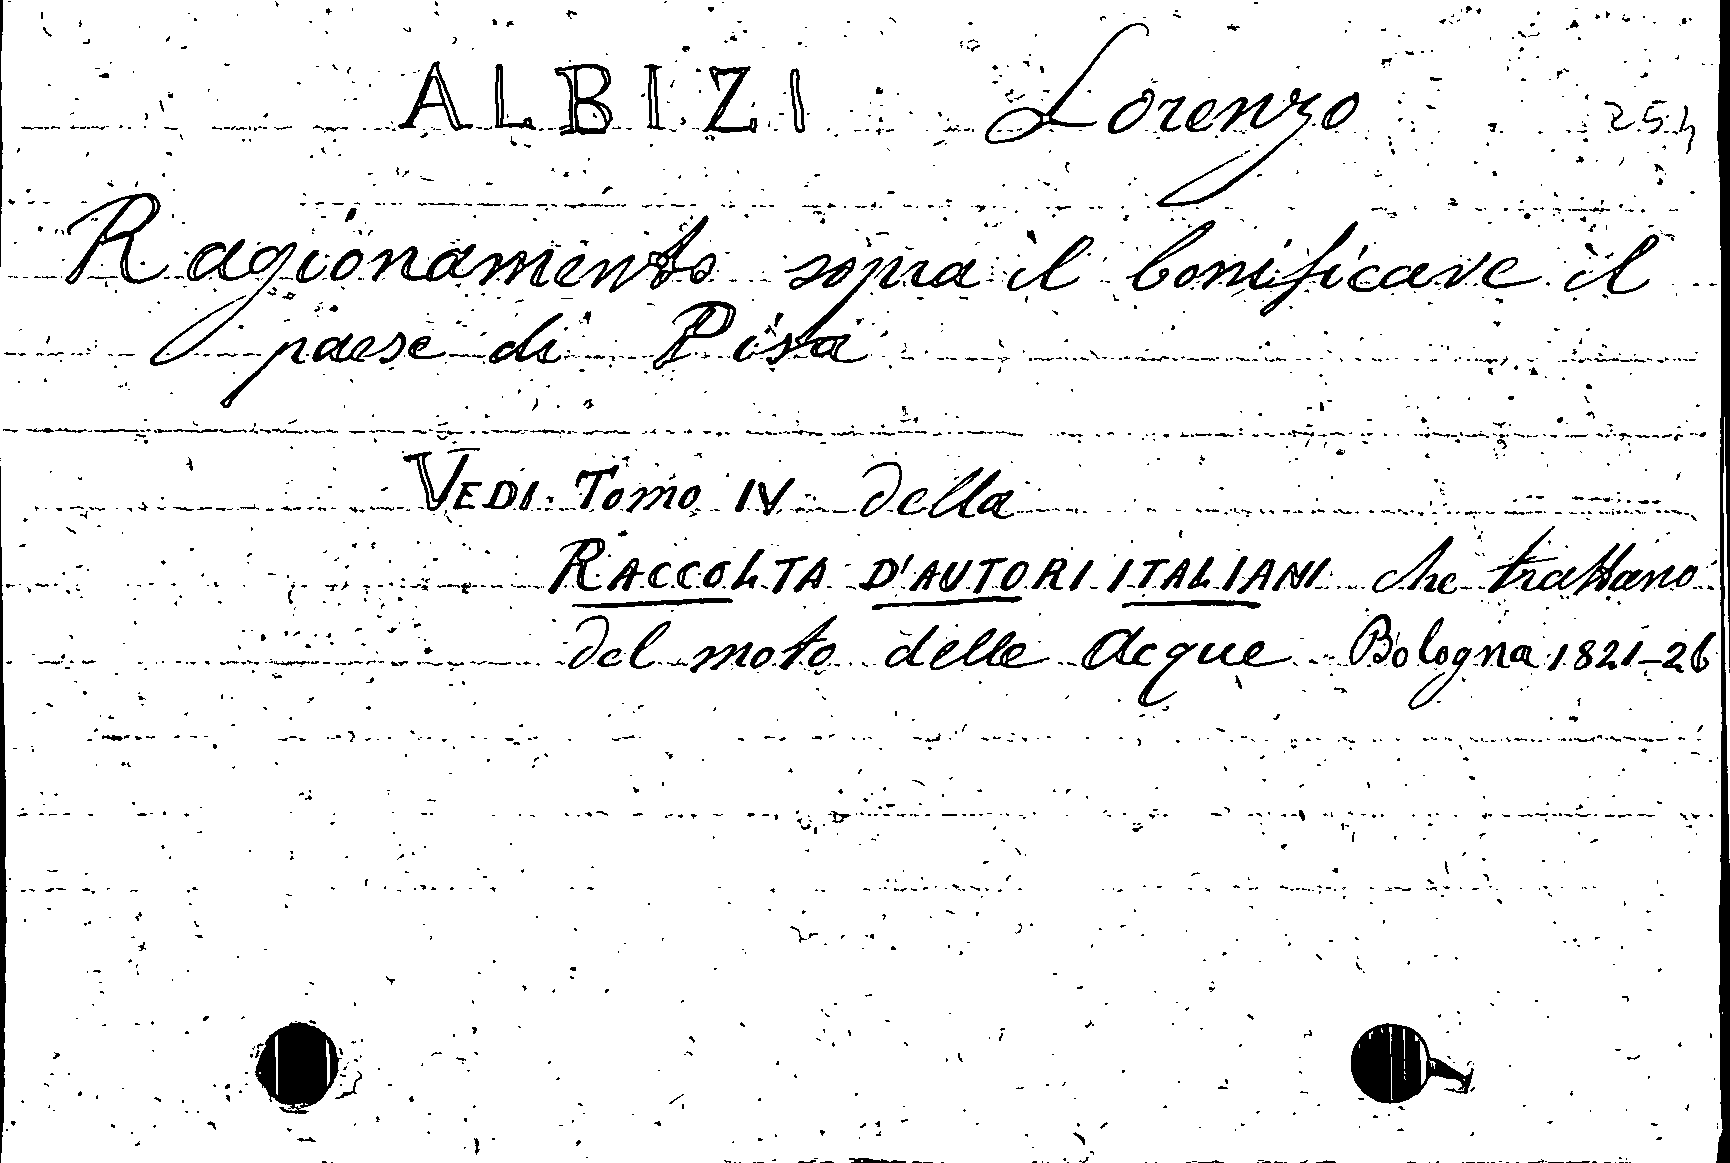 ALBIZI Lorenzo 254
Ragionamento sopra il bonificare il
paese di Pisa
VEDI Tomo IV della
RACCOLTA D'AUTORI ITALIANI che trattano
del moto delle Acque Bologna 1821-26